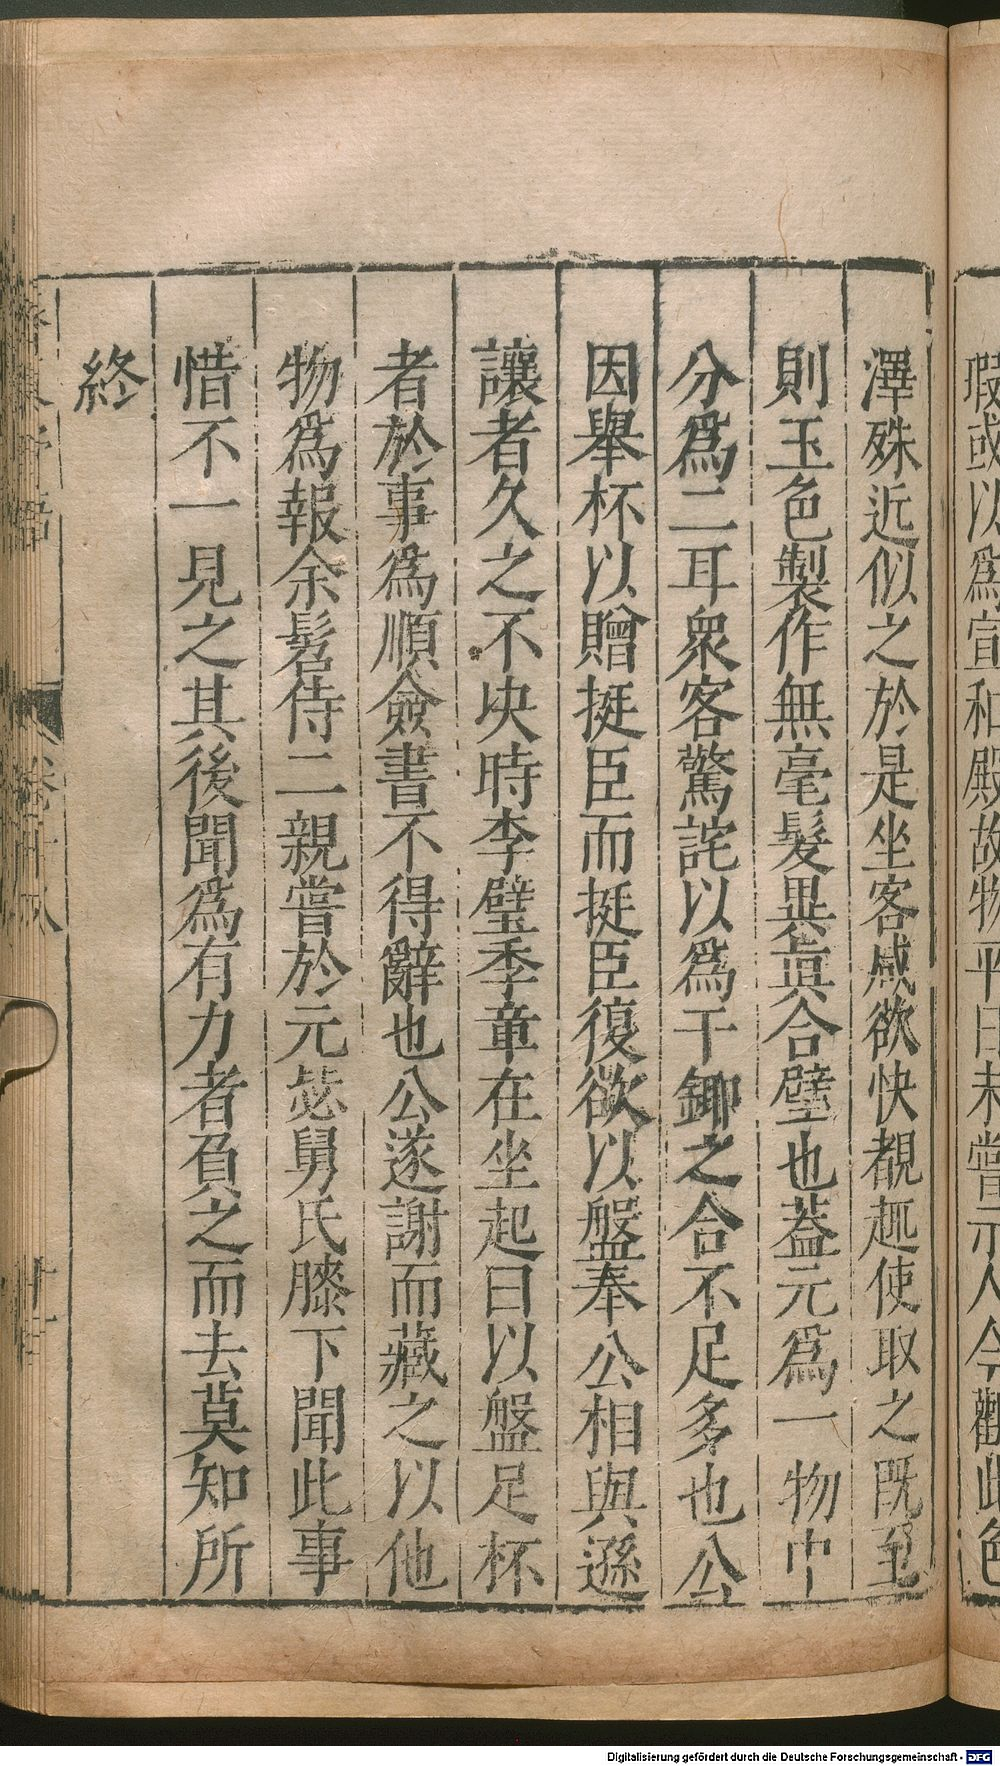 瑕或以爲宣和殿故物平日未嘗示人今觀此色
澤殊近似之於是坐客咸欲快覩趣使取之既至
則玉色製作無毫髮異真合璧也葢元爲一物中
分爲二耳衆客驚詫以爲干鋣之合不足多也公
因舉杯以贈挺臣而挺臣復欲以盤奉公相與遜
讓者久之不决時李璧季章在坐起曰以盤足杯
者於事爲順僉書不得辭也公遂謝而藏之以他
物爲報余髫侍二親嘗於元毖舅氏膝下聞此事
惜不一見之其後聞爲有力者負之而去莫知所
終
卷十八
十一
Digitalisierung gefördert durch die Deutsche Forschungsgemeinschaft - DFG